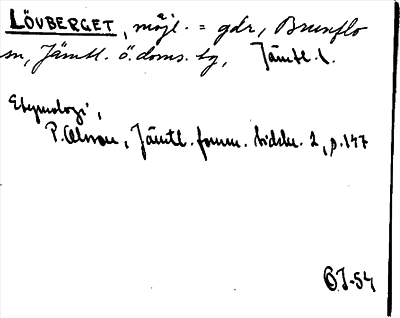 LÖVBERGET, möjl. = gdr, Brunflo
sn, Jämtl. ö. doms. tg, Jämtl. l.
Etymologi,
P. Olsson, Jämtl. fornm. tidskr. 2, p. 147
OJ-54